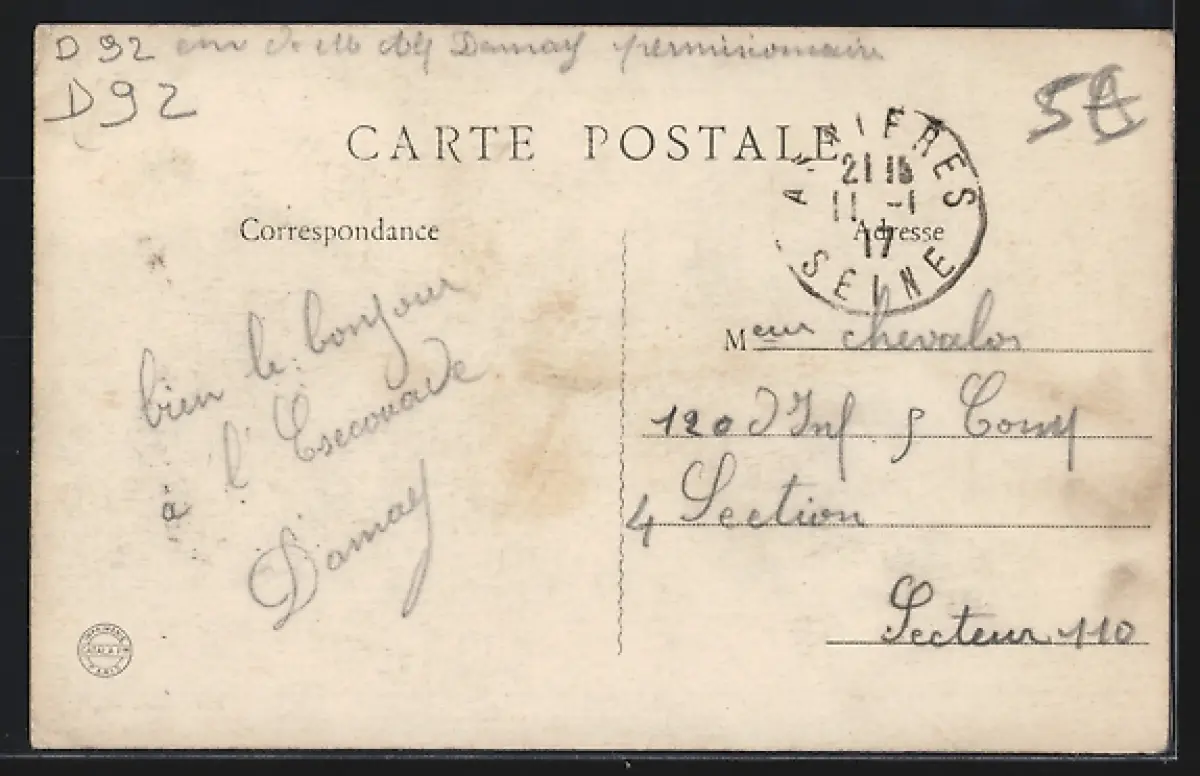 D 92 Damay permissionnaire
D92
5€
CARTE POSTALE
ASNIERES
21 15
11 -1
17
SEINE
Correspondance
Adresse
bien le bonjour
à l'Escouade
Damay
Meur chevalos
120 d'Inf 5 Comp
4 Section
Secteur 110
IMPRIMERIE
PARIS